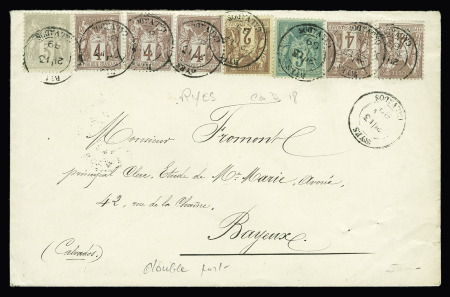 4 4 4 2 4 4
RYES
CALVADOS
Ryes
Monsieur Fromont
principal Clerc, Etude de Mr. Marie, Avoué,
42, rue de la Chaîne,
Bayeux
(Calvados)
double port